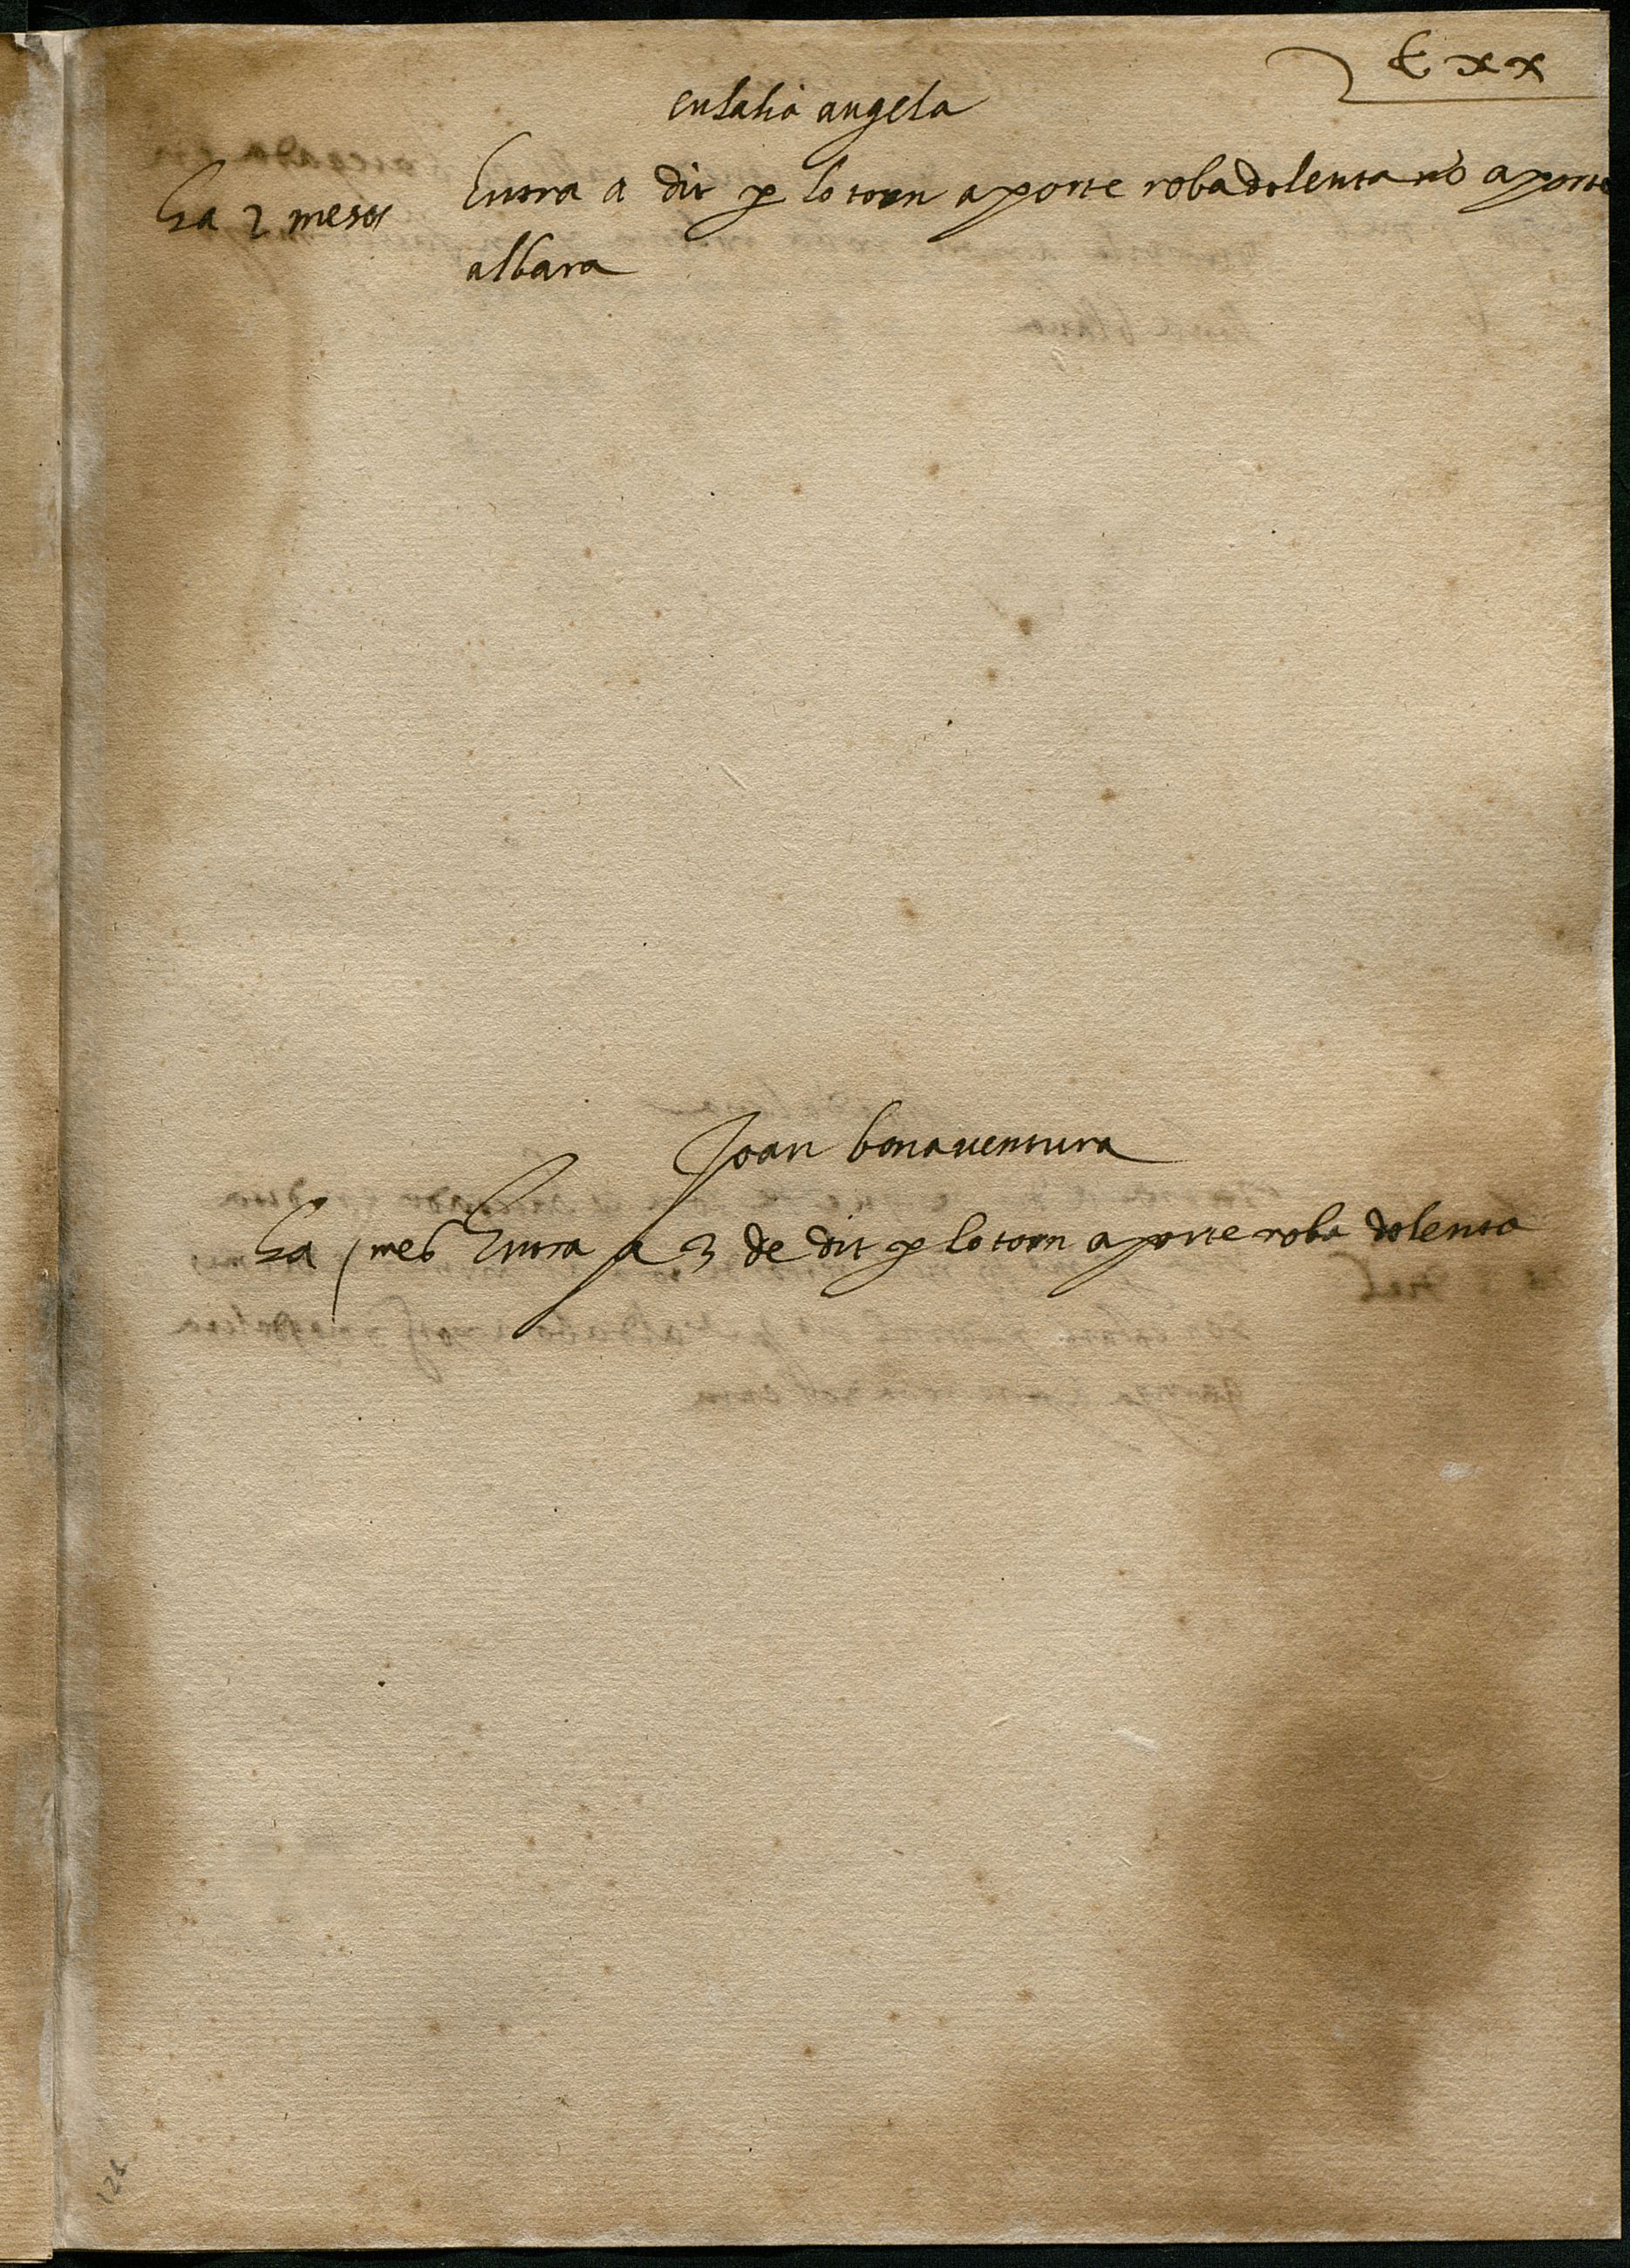 Cxx
eulalia angela
ha 2 mesos Entra a dit p lo torn aporte roba dolenta no aporte
albara
Joan bonaventura
ha 1 mes Entra a 3 de dit p lo torn aporte roba dolenta